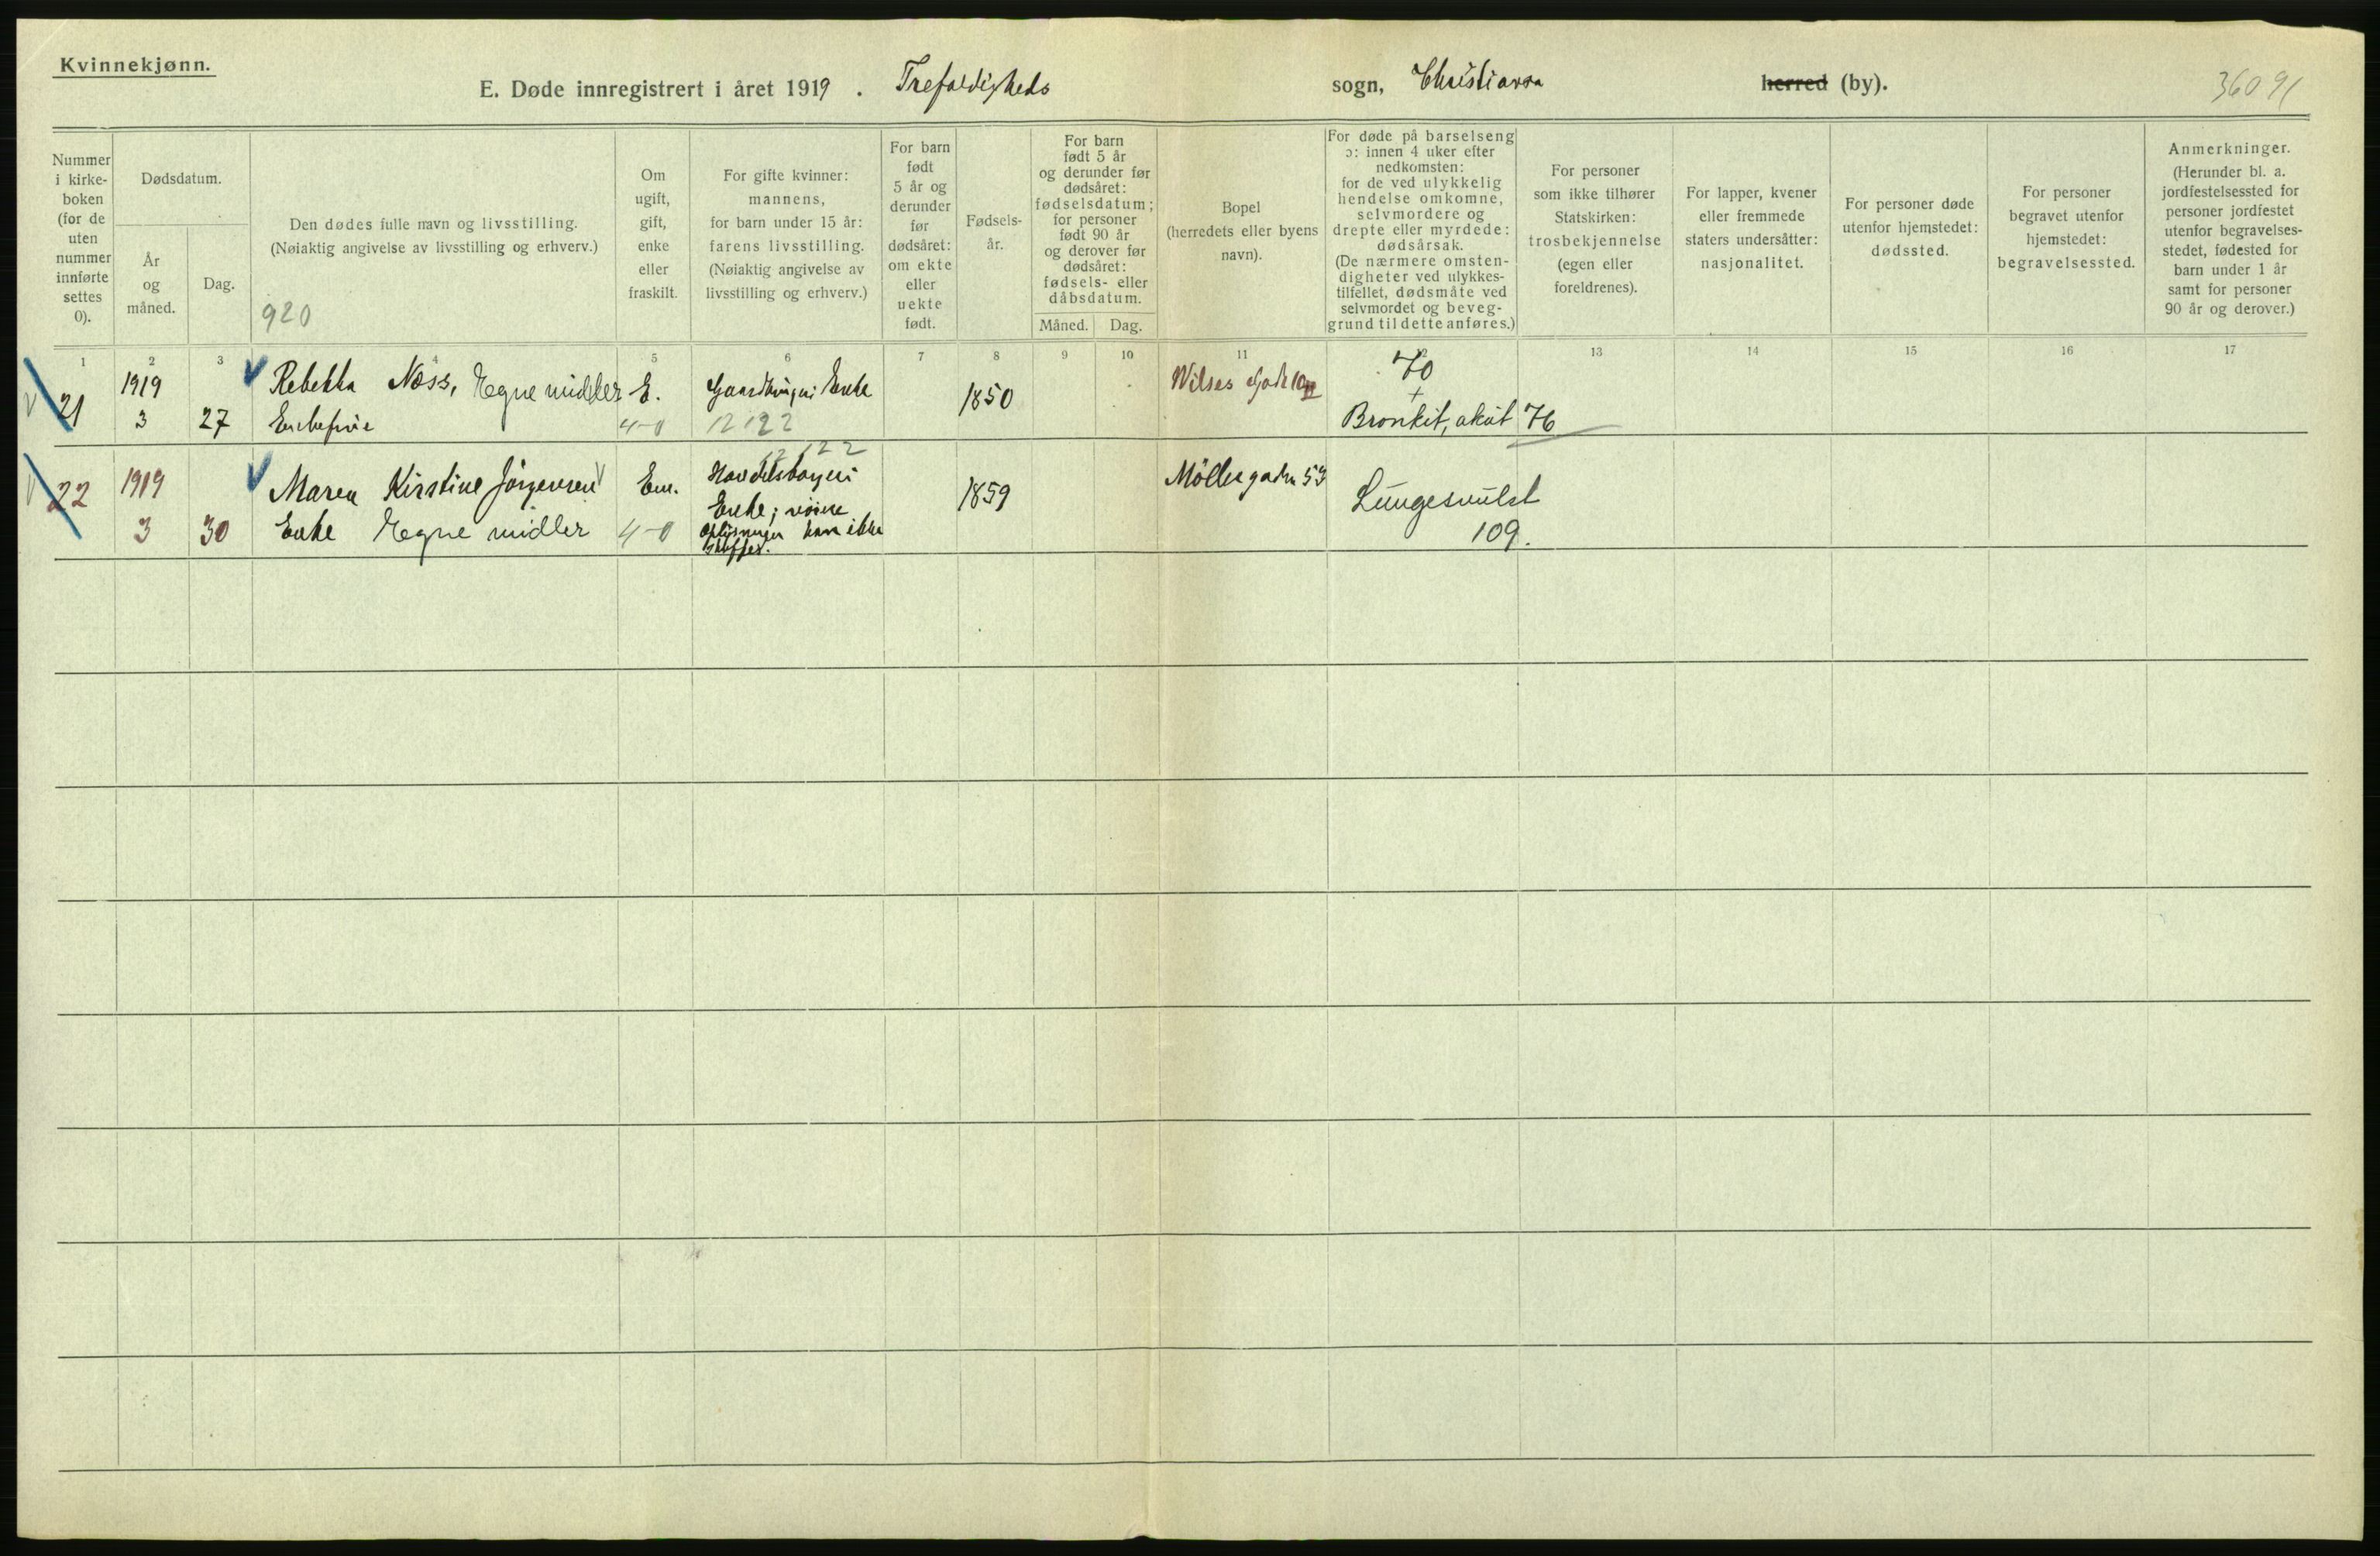 Kvinnekjønn.
E. Døde innregistrert i året 1919 . Trefoldigheds sogn, Christiania herred (by).
36091
Nummer i kirke-boken (for de uten nummer innførte settes 0).
Dødsdatum.
År og måned.
Dag.
Den dødes fulle navn og livsstilling.
(Nøiaktig angivelse av livsstilling og erhverv.)
920
Om ugift, gift, enke eller fraskilt.
For gifte kvinner: mannens, for barn under 15 år: farens livsstilling. (Nøiaktig angivelse av livsstilling og erhverv.)
For barn født 5 år og derunder før dødsåret: om ekte eller uekte født.
Fødsels-år.
For barn født 5 år og derunder før dødsåret: fødselsdatum; for personer født 90 år og derover før dødsåret: fødsels- eller dåbsdatum.
Måned. Dag.
Bopel (herredets eller byens navn).
For døde på barselseng ɔ: innen 4 uker efter nedkomsten: for de ved ulykkelig hendelse omkomne, selvmordere og drepte eller myrdede: dødsårsak. (De nærmere omsten-digheter ved ulykkes-tilfellet, dødsmåte ved selvmordet og beveg-grund til dette anføres.)
For personer som ikke tilhører Statskirken: trosbekjennelse (egen eller foreldrenes).
For lapper, kvener eller fremmede staters undersåtter: nasjonalitet.
For personer døde utenfor hjemstedet: dødssted.
For personer begravet utenfor hjemstedet: begravelsessted.
Anmerkninger. (Herunder bl. a. jordfestelsessted for personer jordfestet utenfor begravelses-stedet, fødested for barn under 1 år samt for personer 90 år og derover.)
1 2 3 4 5 6 7 8 9 10 11 12 13 14 15 16 17
21 1919 3 27 Rebekka Næss, Egne midler
Enkefrue
E. 4-0
Enke
12122
1850
Wilses Gade 10
70
+
Bronkit, akut 76
22 1919 3 30 Maren Kirstine Jörgensen
Enke Egne midler
Em. 4-0
12122
Enke; nöiere
Oplysninger kan ikke
skaffes.
1859
Möllergaden 59
Lungesvulst
109.